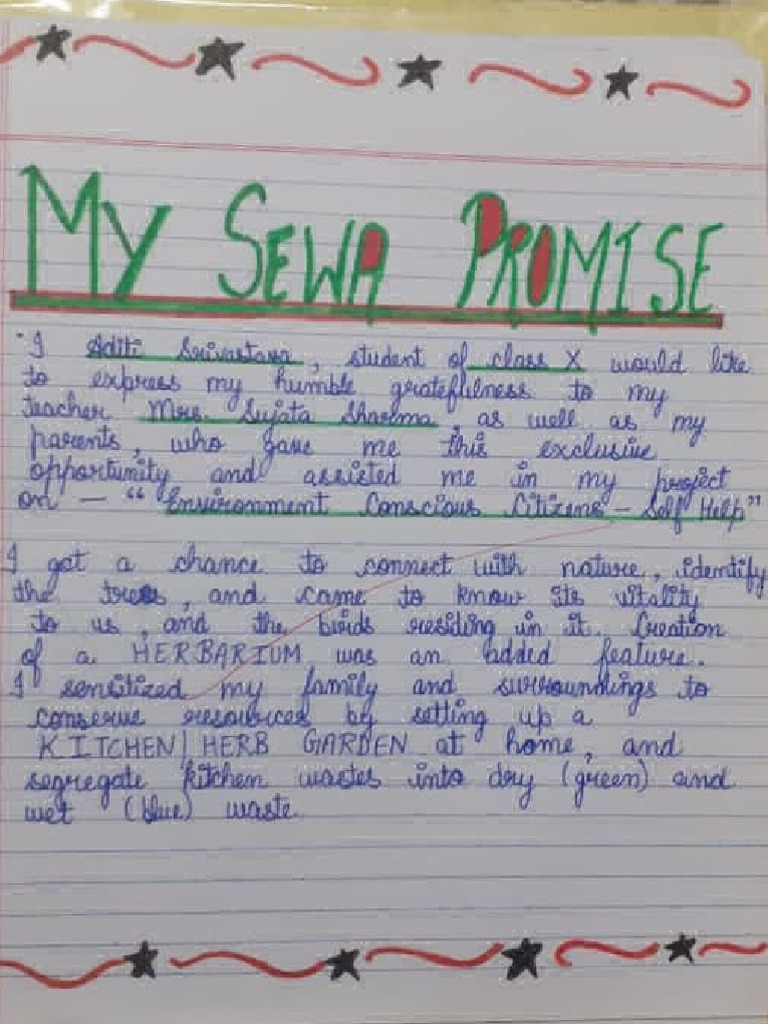 MY SEWA PROMISE
"I Aditi Srivastava, student of class X would like
to express my humble gratefulness to my
teacher Mrs. Sujata Sharma, as well as my
parents, who gave me this exclusive
opportunity and assisted me in my project
on – "Environment Conscious Citizens – Self Help"
I got a chance to connect with nature, identify
the trees, and came to know its vitality
to us, and the birds residing in it. Creation
of a HERBARIUM was an added feature.
I sensitized my family and surroundings to
conserve resources by setting up a
KITCHEN| HERB GARDEN at home, and
segregate kitchen wastes into dry (green) and
wet (blue) waste.